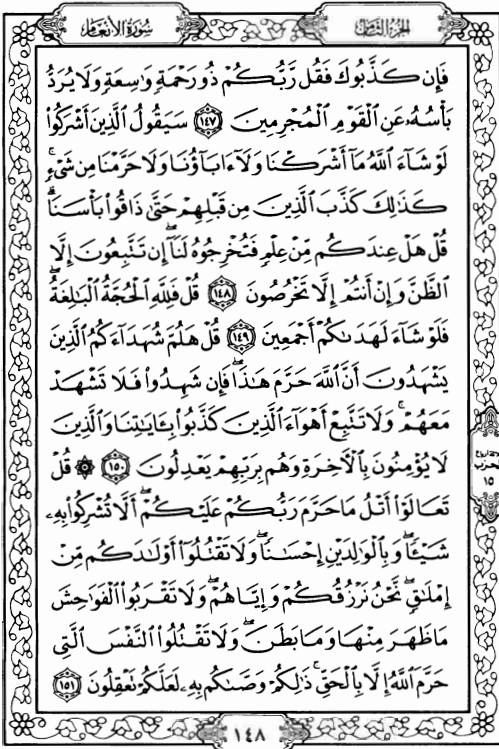 سُورَةُ الأَنْعَام
الجُزْءُ الثَّامِنُ
فَإِن كَذَّبُوكَ فَقُل رَّبُّكُمْ ذُو رَحْمَةٍ وَٰسِعَةٍ وَلَا يُرَدُّ
بَأْسُهُۥ عَنِ ٱلْقَوْمِ ٱلْمُجْرِمِينَ ١٤٧ سَيَقُولُ ٱلَّذِينَ أَشْرَكُوا۟
لَوْ شَآءَ ٱللَّهُ مَآ أَشْرَكْنَا وَلَآ ءَابَآؤُنَا وَلَا حَرَّمْنَا مِن شَىْءٍۚ
كَذَٰلِكَ كَذَّبَ ٱلَّذِينَ مِن قَبْلِهِمْ حَتَّىٰ ذَاقُوا۟ بَأْسَنَاۗ
قُلْ هَلْ عِندَكُم مِّنْ عِلْمٍ فَتُخْرِجُوهُ لَنَآۖ إِن تَتَّبِعُونَ إِلَّا
ٱلظَّنَّ وَإِنْ أَنتُمْ إِلَّا تَخْرُصُونَ ١٤٨ قُلْ فَلِلَّهِ ٱلْحُجَّةُ ٱلْبَٰلِغَةُۖ
فَلَوْ شَآءَ لَهَدَىٰكُمْ أَجْمَعِينَ ١٤٩ قُلْ هَلُمَّ شُهَدَآءَكُمُ ٱلَّذِينَ
يَشْهَدُونَ أَنَّ ٱللَّهَ حَرَّمَ هَٰذَاۖ فَإِن شَهِدُوا۟ فَلَا تَشْهَدْ
مَعَهُمْۚ وَلَا تَتَّبِعْ أَهْوَآءَ ٱلَّذِينَ كَذَّبُوا۟ بِـَٔايَٰتِنَا وَٱلَّذِينَ
لَا يُؤْمِنُونَ بِٱلْءَاخِرَةِ وَهُم بِرَبِّهِمْ يَعْدِلُونَ ١٥٠ ۞ قُلْ
تَعَالَوْا۟ أَتْلُ مَا حَرَّمَ رَبُّكُمْ عَلَيْكُمْۖ أَلَّا تُشْرِكُوا۟ بِهِۦ
شَيْـًٔاۖ وَبِٱلْوَٰلِدَيْنِ إِحْسَٰنًاۖ وَلَا تَقْتُلُوٓا۟ أَوْلَٰدَكُم مِّنْ
إِمْلَٰقٍۖ نَّحْنُ نَرْزُقُكُمْ وَإِيَّاهُمْۖ وَلَا تَقْرَبُوا۟ ٱلْفَوَٰحِشَ
مَا ظَهَرَ مِنْهَا وَمَا بَطَنَۖ وَلَا تَقْتُلُوا۟ ٱلنَّفْسَ ٱلَّتِى
حَرَّمَ ٱللَّهُ إِلَّا بِٱلْحَقِّۚ ذَٰلِكُمْ وَصَّىٰكُم بِهِۦ لَعَلَّكُمْ تَعْقِلُونَ ١٥١
الحزب
١٥
١٤٨